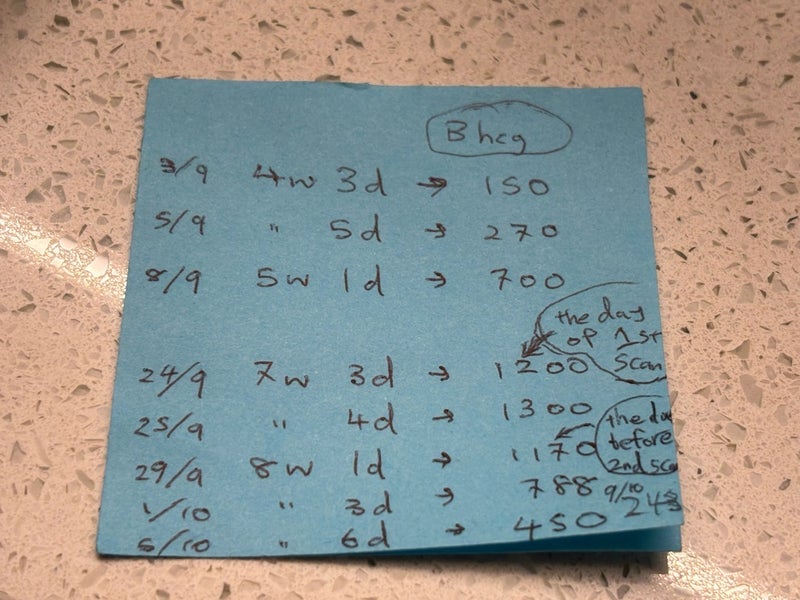 B hcg
3/9 4w 3d → 150
5/9 " 5d → 270
8/9 5w 1d → 700
the day
of 1st
scan
24/9 7w 3d → 1200
25/9 " 4d → 1300
the da
before
2nd sca
29/9 8w 1d → 1170
1/10 " 3d → 788
9/10
5/10 " 6d → 450